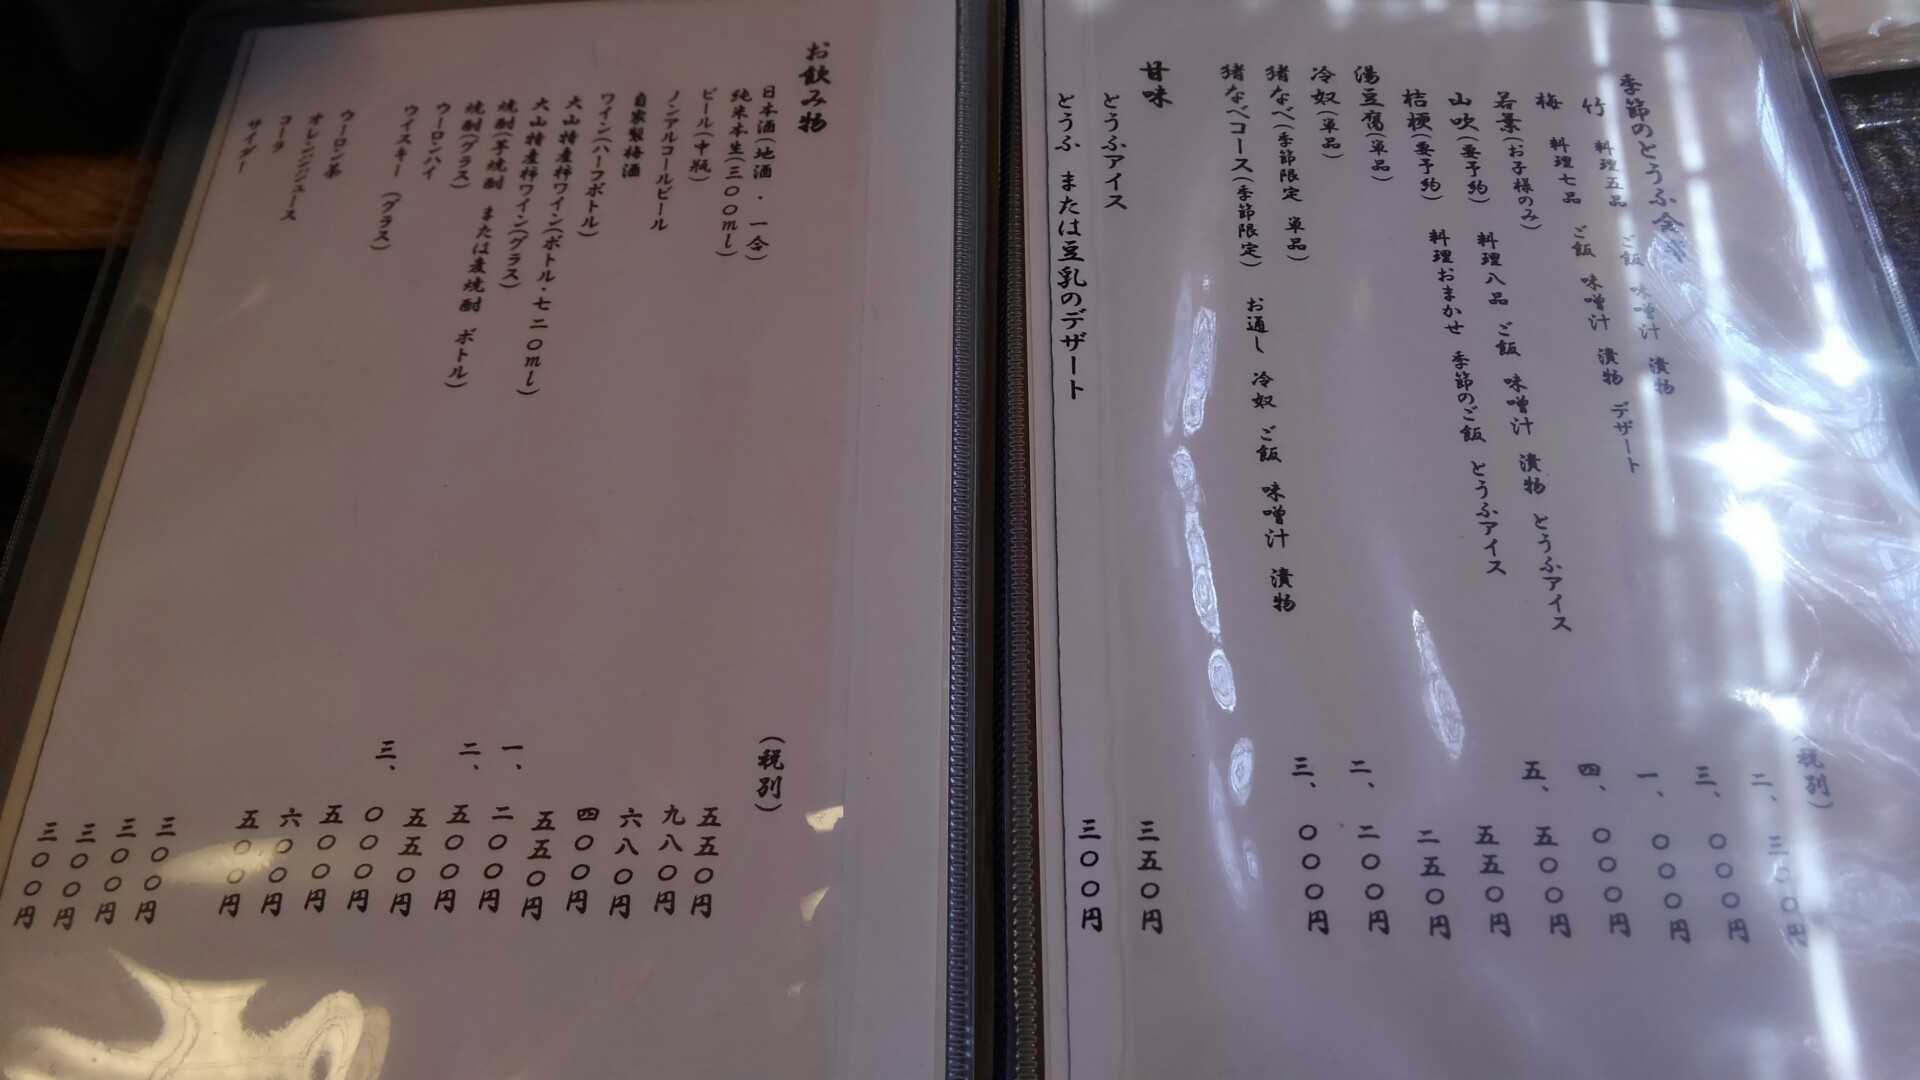 季節のとうふ会席
(税別)
竹 料理五品 ご飯 味噌汁 漬物 二、三〇〇円
梅 料理七品 ご飯 味噌汁 漬物 デザート 三、〇〇〇円
若葉(お子様のみ) 一、〇〇〇円
山吹(要予約) 料理八品 ご飯 味噌汁 漬物 とうふアイス 四、〇〇〇円
桔梗(要予約) 料理おまかせ 季節のご飯 とうふアイス 五、五〇〇円
湯豆腐(単品) 五五〇円
冷奴(単品) 二五〇円
猪なべ(季節限定 単品) 二、二〇〇円
猪なべコース(季節限定) お通し 冷奴 ご飯 味噌汁 漬物 三、〇〇〇円
甘味
とうふアイス 三五〇円
とうふ または豆乳のデザート 三〇〇円
お飲み物
(税別)
日本酒(地酒・一合) 五五〇円
純米本生(三〇〇ml) 九八〇円
ビール(中瓶) 六八〇円
ノンアルコールビール 四〇〇円
自家製梅酒 五五〇円
ワイン(ハーフボトル) 一、二〇〇円
大山特産柿ワイン(ボトル・七二〇ml) 二、五〇〇円
大山特産柿ワイン(グラス) 五五〇円
焼酎(芋焼酎 または麦焼酎 ボトル) 三、〇〇〇円
焼酎(グラス) 五〇〇円
ウーロンハイ 六〇〇円
ウイスキー(グラス) 五〇〇円
ウーロン茶 三〇〇円
オレンジジュース 三〇〇円
コーラ 三〇〇円
サイダー 三〇〇円